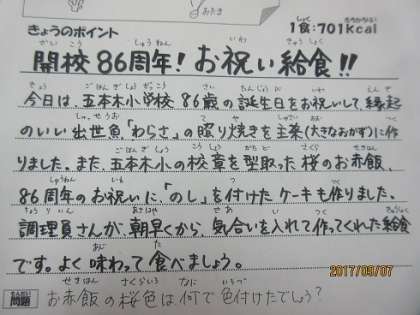 きょうのポイント
1食:701kcal
開校86周年!お祝い給食!!
今日は、五本木小学校86歳の誕生日をお祝いして、縁起
のいい出世魚「わらさ」の照り焼きを主菜(大きなおかず)に作
りました。また、五本木小の校章を型取った桜のお赤飯、
86周年のお祝いに、「のし」を付けたケーキも作りました。
調理員さんが、朝早くから、気合いを入れて作ってくれた給食
です。よく味わって食べましょう。
2017/09/07
問題 お赤飯の桜色は何で色付けたでしょう?